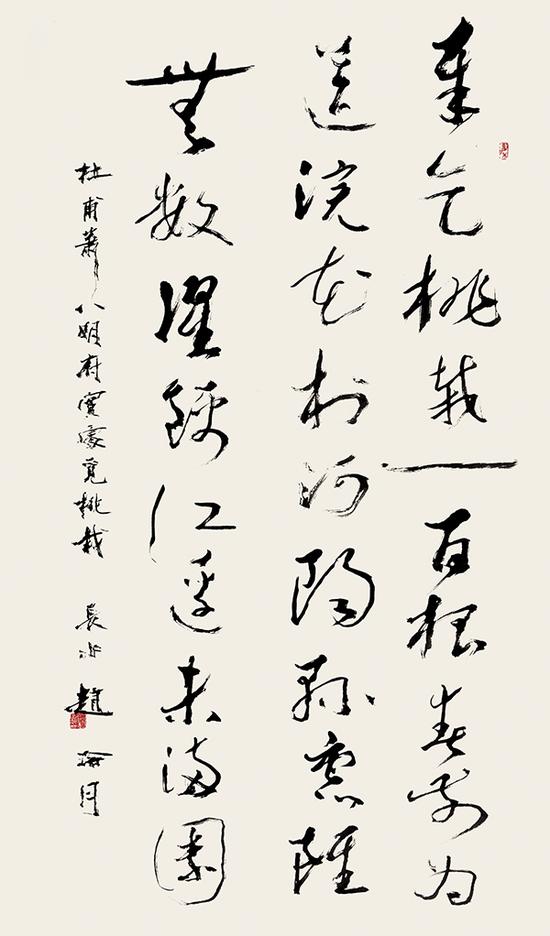 奉乞桃栽一百根春前為
送浣花村河陽縣裏雖
無數濯錦江邊未滿園
杜甫蕭八明府實處覓桃栽 長 趙 月